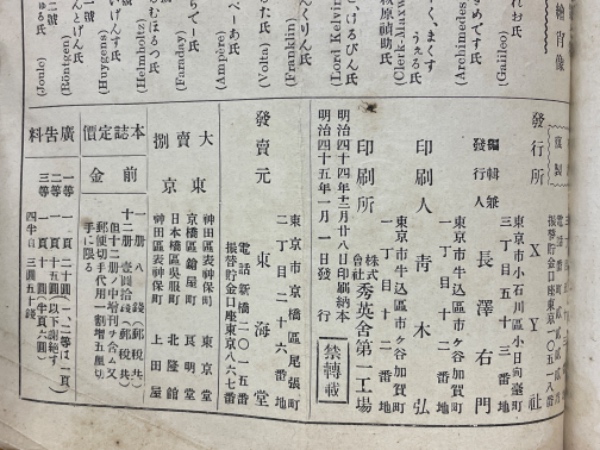 繪肖像
れお氏
(Galileo)
きめです氏
(Archimedes)
く、まくす
うぇる氏
(Clerk-Maxw
萩原禎助氏
ど、けるびん氏
(Lord Kelvin
んくりん氏
(Franklin)
た氏
(Volta)
ぺーあ氏
(Ampère)
らでー氏
(Faraday)
むほるつ氏
(Helmboltz)
いげんす氏
(Huygens)
一號
んとげん氏
(Röntgen)
二號
る氏
(Joule)
發行所
東京市小石川區小日向臺町
三丁目五十三番地
X Y 社
振替貯金口座東京一〇五一八番
編輯兼
發行人
東京市牛込區市ヶ谷加賀町
一丁目十二番地
長澤右門
印刷人
東京市牛込區市ヶ谷加賀町
一丁目十二番地
青木弘
印刷所
株式
會社
秀英舍第一工場
明治四十四年十二月廿八日印刷納本
明治四十五年一月一日發行
禁轉載
發賣元
東京市京橋區尾張町
二丁目二十六番地
東海堂
電話新橋二〇一五番
振替貯金口座東京八六七番
大賣捌
東京
神田區表神保町 東京堂
京橋區鎗屋町 良明堂
日本橋區吳服町 北隆館
神田區表神保町 上田屋
本誌定價
前金
一册 八錢(郵税共)
十二册 壹圓拾錢(郵税共)
但十二册ノ中增刊ヲ合ム又
郵便切手代用一割增五厘切
手に限る
廣告料
一等 一頁 二十圓(一、二等は一頁
二等 一頁 十五圓(以下謝絶す
三等 一頁 十圓(半頁六圓)
四半頁 三圓五十錢